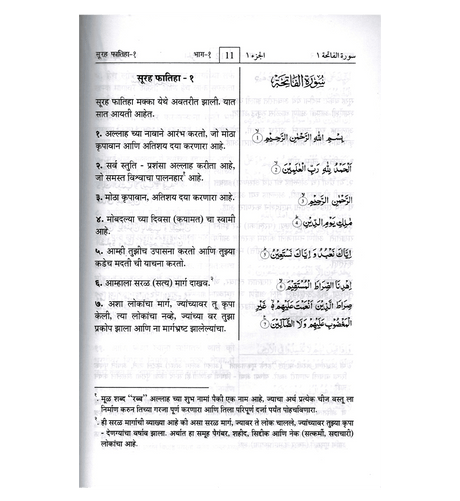 सूरह फातिहा-१ भाग-१ 11 الجزء ١ سورة الفاتحة ١
सूरह फातिहा - १
सूरह फातिहा मक्का येथे अवतरीत झाली. यात
सात आयती आहेत.
१. अल्लाह च्या नावाने आरंभ करतो, जो मोठा
कृपावान आणि अतिशय दया करणारा आहे.
२. सर्व स्तुति - प्रशंसा अल्लाह करीता आहे,
जो समस्त विश्वाचा पालनहार¹ आहे.
३. मोठा कृपावान, अतिशय दया करणारा आहे.
४. मोबदल्या च्या दिवसा (कयामत) चा स्वामी
आहे.
५. आम्ही तुझीच उपासना करतो आणि तुझ्या
कडेच मदती ची याचना करतो.
६. आम्हाला सरळ (सत्य) मार्ग दाखव.²
७. अशा लोकांचा मार्ग, ज्यांच्यावर तू कृपा
केली, त्या लोकांचा नव्हे, ज्यांच्या वर तुझा
प्रकोप झाला आणि ना मार्गभ्रष्ट झालेल्यांचा.
سُوْرَةُ الْفَاتِحَةِ
بِسْمِ اللهِ الرَّحْمٰنِ الرَّحِيْمِ ١
اَلْحَمْدُ لِلّٰهِ رَبِّ الْعٰلَمِيْنَ ٢
الرَّحْمٰنِ الرَّحِيْمِ ٣
مٰلِكِ يَوْمِ الدِّيْنِ ٤
اِيَّاكَ نَعْبُدُ وَاِيَّاكَ نَسْتَعِيْنُ ٥
اِهْدِنَا الصِّرَاطَ الْمُسْتَقِيْمَ ٦
صِرَاطَ الَّذِيْنَ اَنْعَمْتَ عَلَيْهِمْ غَيْرِ
الْمَغْضُوْبِ عَلَيْهِمْ وَلَا الضَّآلِّيْنَ ٧
¹· मूळ शब्द "रब्ब" अल्लाह च्या शुभ नामां पैकी एक नाम आहे. ज्याचा अर्थ प्रत्येक चीज वस्तु ला
निर्माण करुन तिच्या गरजा पूर्ण करणारा आणि तिला परिपूर्ण दर्जा पर्यंत पोहचविणारा.
²· ही सरळ मार्गाची व्याख्या आहे को असा सरळ मार्ग, ज्यावर ते लोक चालले, ज्यांच्यावर तुझ्या कृपा
- देणग्यांचा वर्षाव झाला. अर्थात हा समूह पैगंबर, शहीद, सिद्दीक आणि नेक (सत्कर्मी, सदाचारी)
लोकांचा आहे.